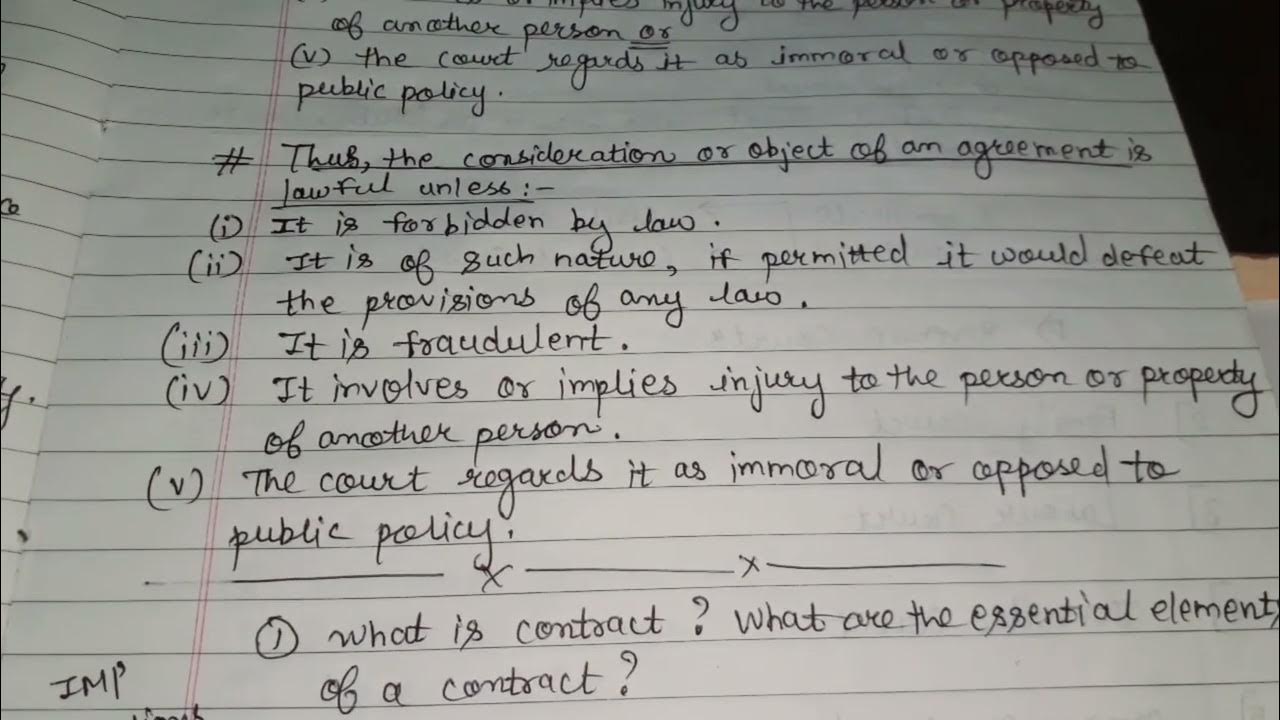 or implies injury to the person or property
of another person or
(v) the court regards it as immoral or opposed to
public policy.
# Thus, the consideration or object of an agreement is
lawful unless :-
(i) It is forbidden by law.
(ii) It is of such nature, if permitted it would defeat
the provisions of any law.
(iii) It is fraudulent.
(iv) It involves or implies injury to the person or property
of another person.
(v) The court regards it as immoral or opposed to
public policy.
x x
① What is contract? What are the essential element
IMP of a contract?